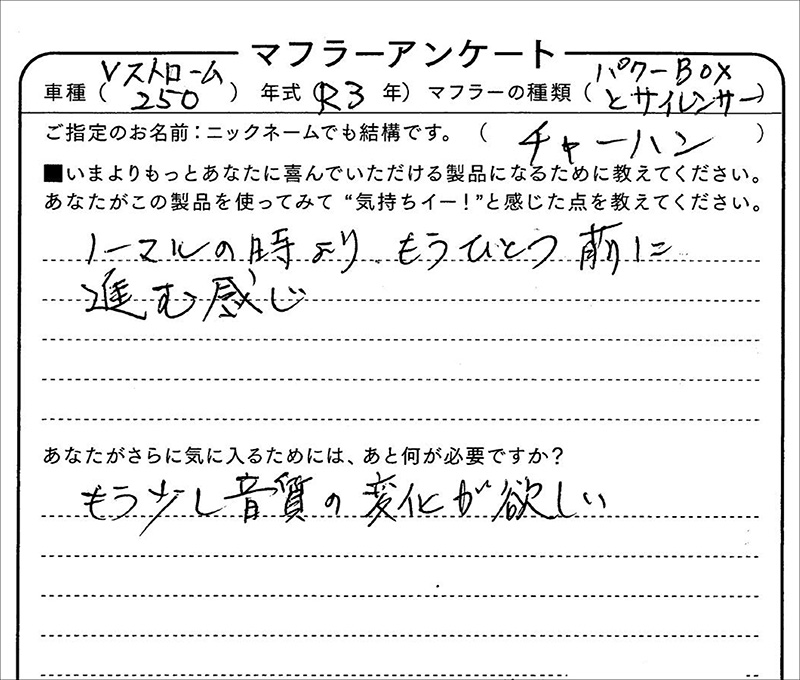 マフラーアンケート
車種（Vストローム250）年式（R3年）マフラーの種類（パワーBOXとサイレンサー）
ご指定のお名前：ニックネームでも結構です。（チャーハン）
■いまよりもっとあなたに喜んでいただける製品になるために教えてください。
あなたがこの製品を使ってみて“気持ちイー！”と感じた点を教えてください。
ノーマルの時より、もうひとつ前に
進む感じ
あなたがさらに気に入るためには、あと何が必要ですか？
もう少し音質の変化が欲しい